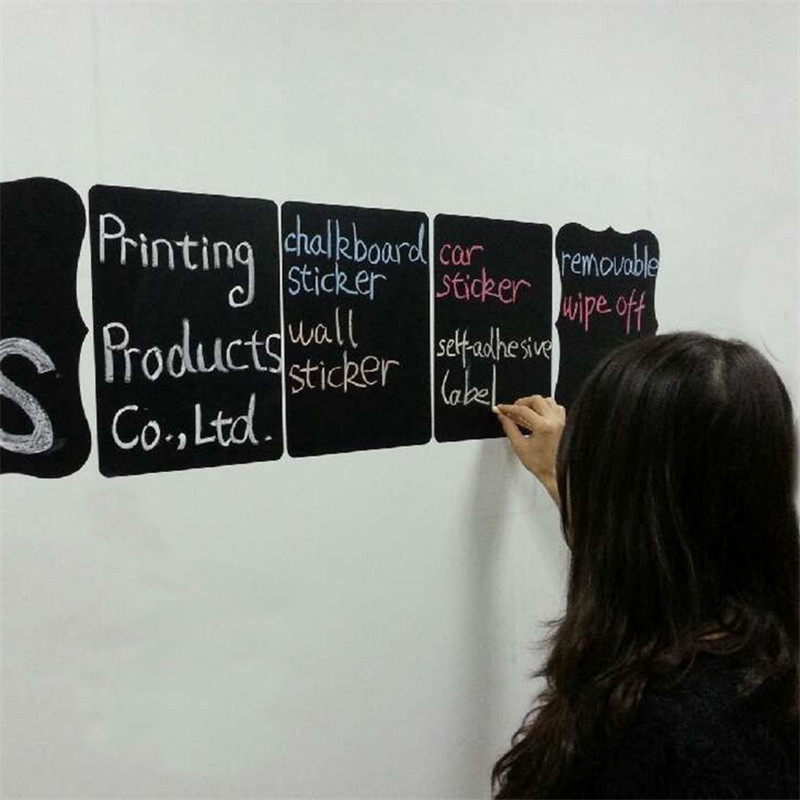 S
Printing
Products
Co., Ltd.
chalkboard
sticker
wall
sticker
car
sticker
self-adhesive
label
removable
wipe off